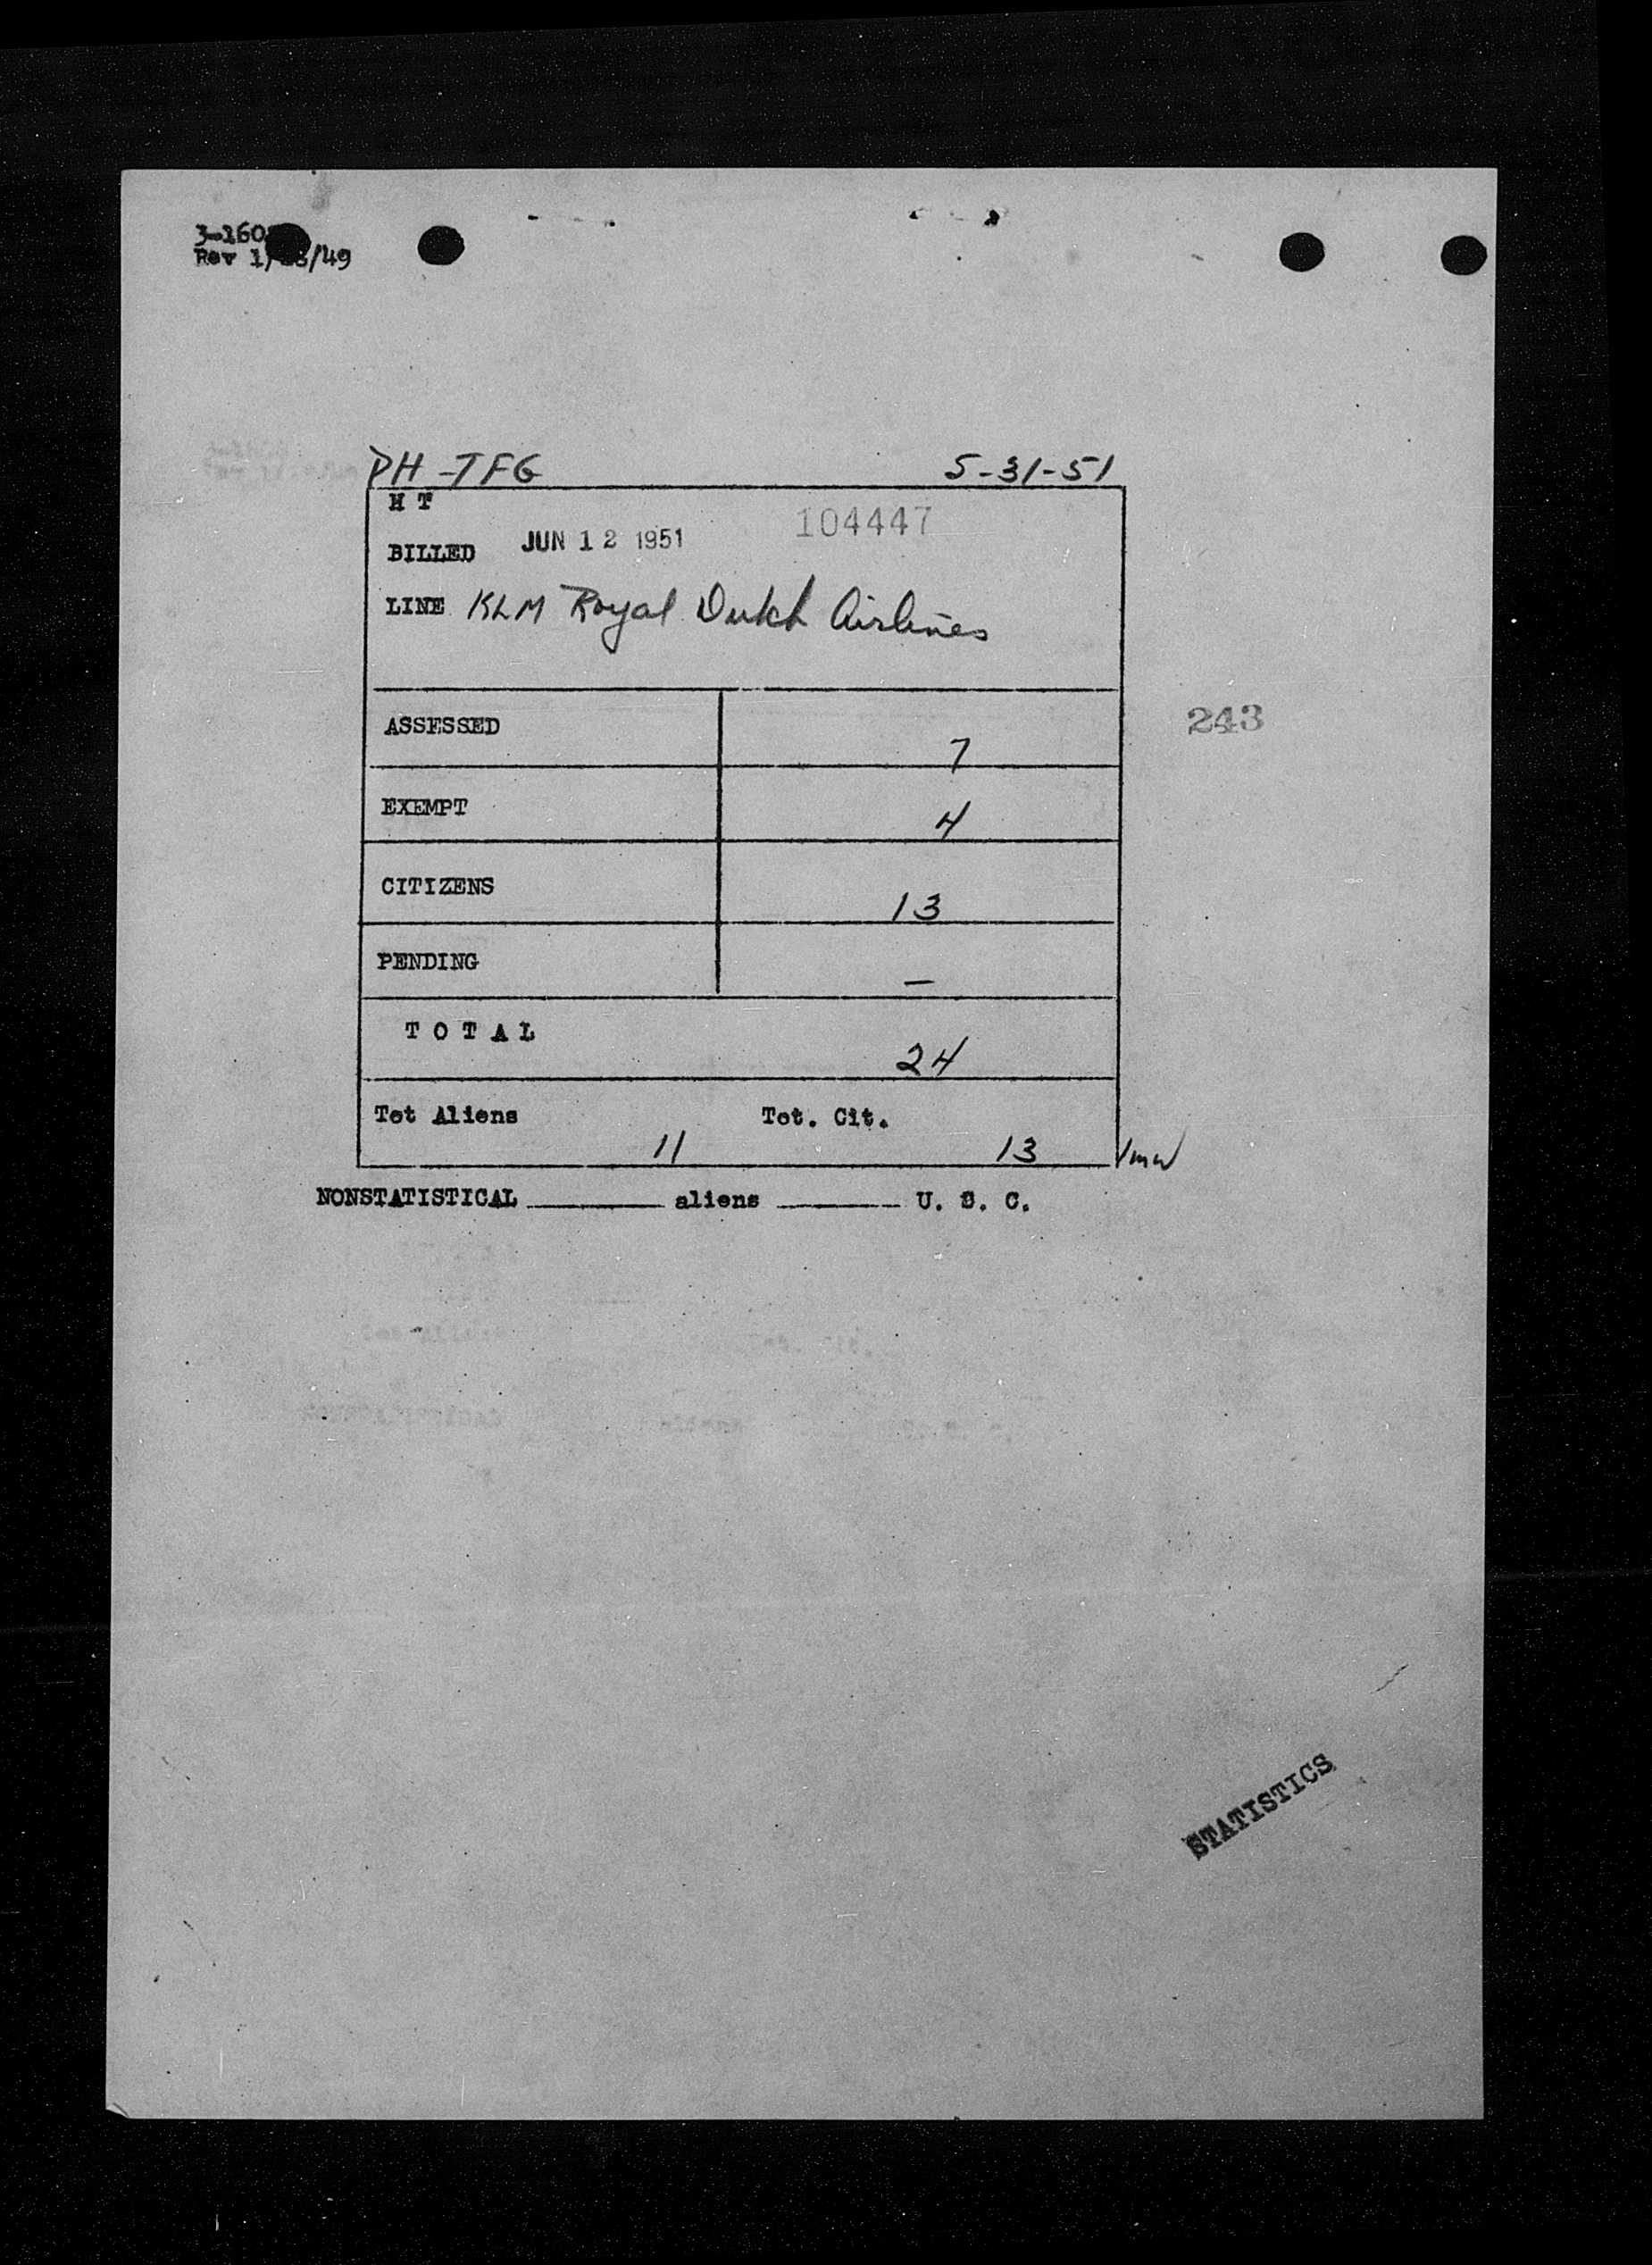 3-160
Rev 1/ /49
PH-TFG 5-31-51
H T
104447
BILLED JUN 12 1951
LINE KLM Royal Dutch Airlines
ASSESSED 7
243
EXEMPT 4
CITIZENS 13
PENDING —
TOTAL 24
Tot Aliens 11 Tot. Cit. 13
NONSTATISTICAL ______ aliens ______ U. S. C.
STATISTICS